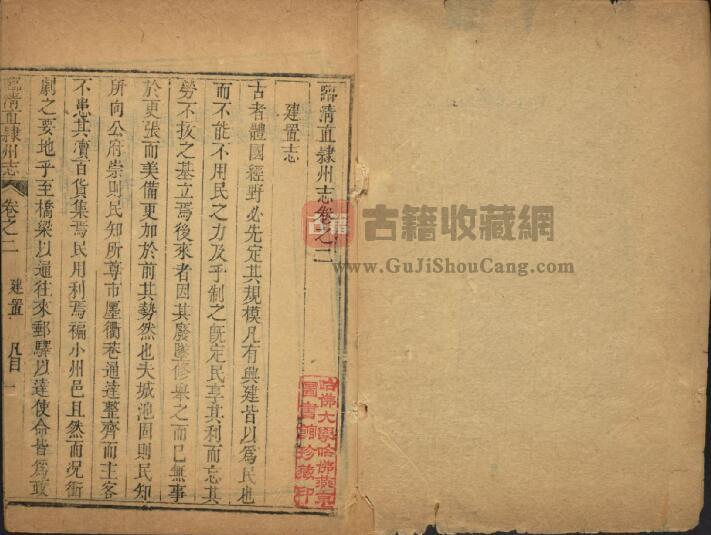 臨清直隸州志卷之二
建置志
古者體國經野必先定其規模凡有興建皆以為民也
而不能不用民之力及乎制之既定民享其利而忘其
勞不拔之基立焉後來者因其廢墜修舉之而已無事
於更張而美備更加於前其勢然也夫城池固則民知
所向公府崇則民知所尊市廛衢巷通達整齊而主客
不患其瀆百貨集焉民用利焉褊小州邑且然而況衝
劇之要地乎至橋梁以通往來郵驛以達使命皆為政
臨清直隸州志 卷之二 建置 凡目 一
哈佛大學哈佛燕京
圖書館珍藏印
古籍
古籍收藏網
www.GuJiShouCang.com